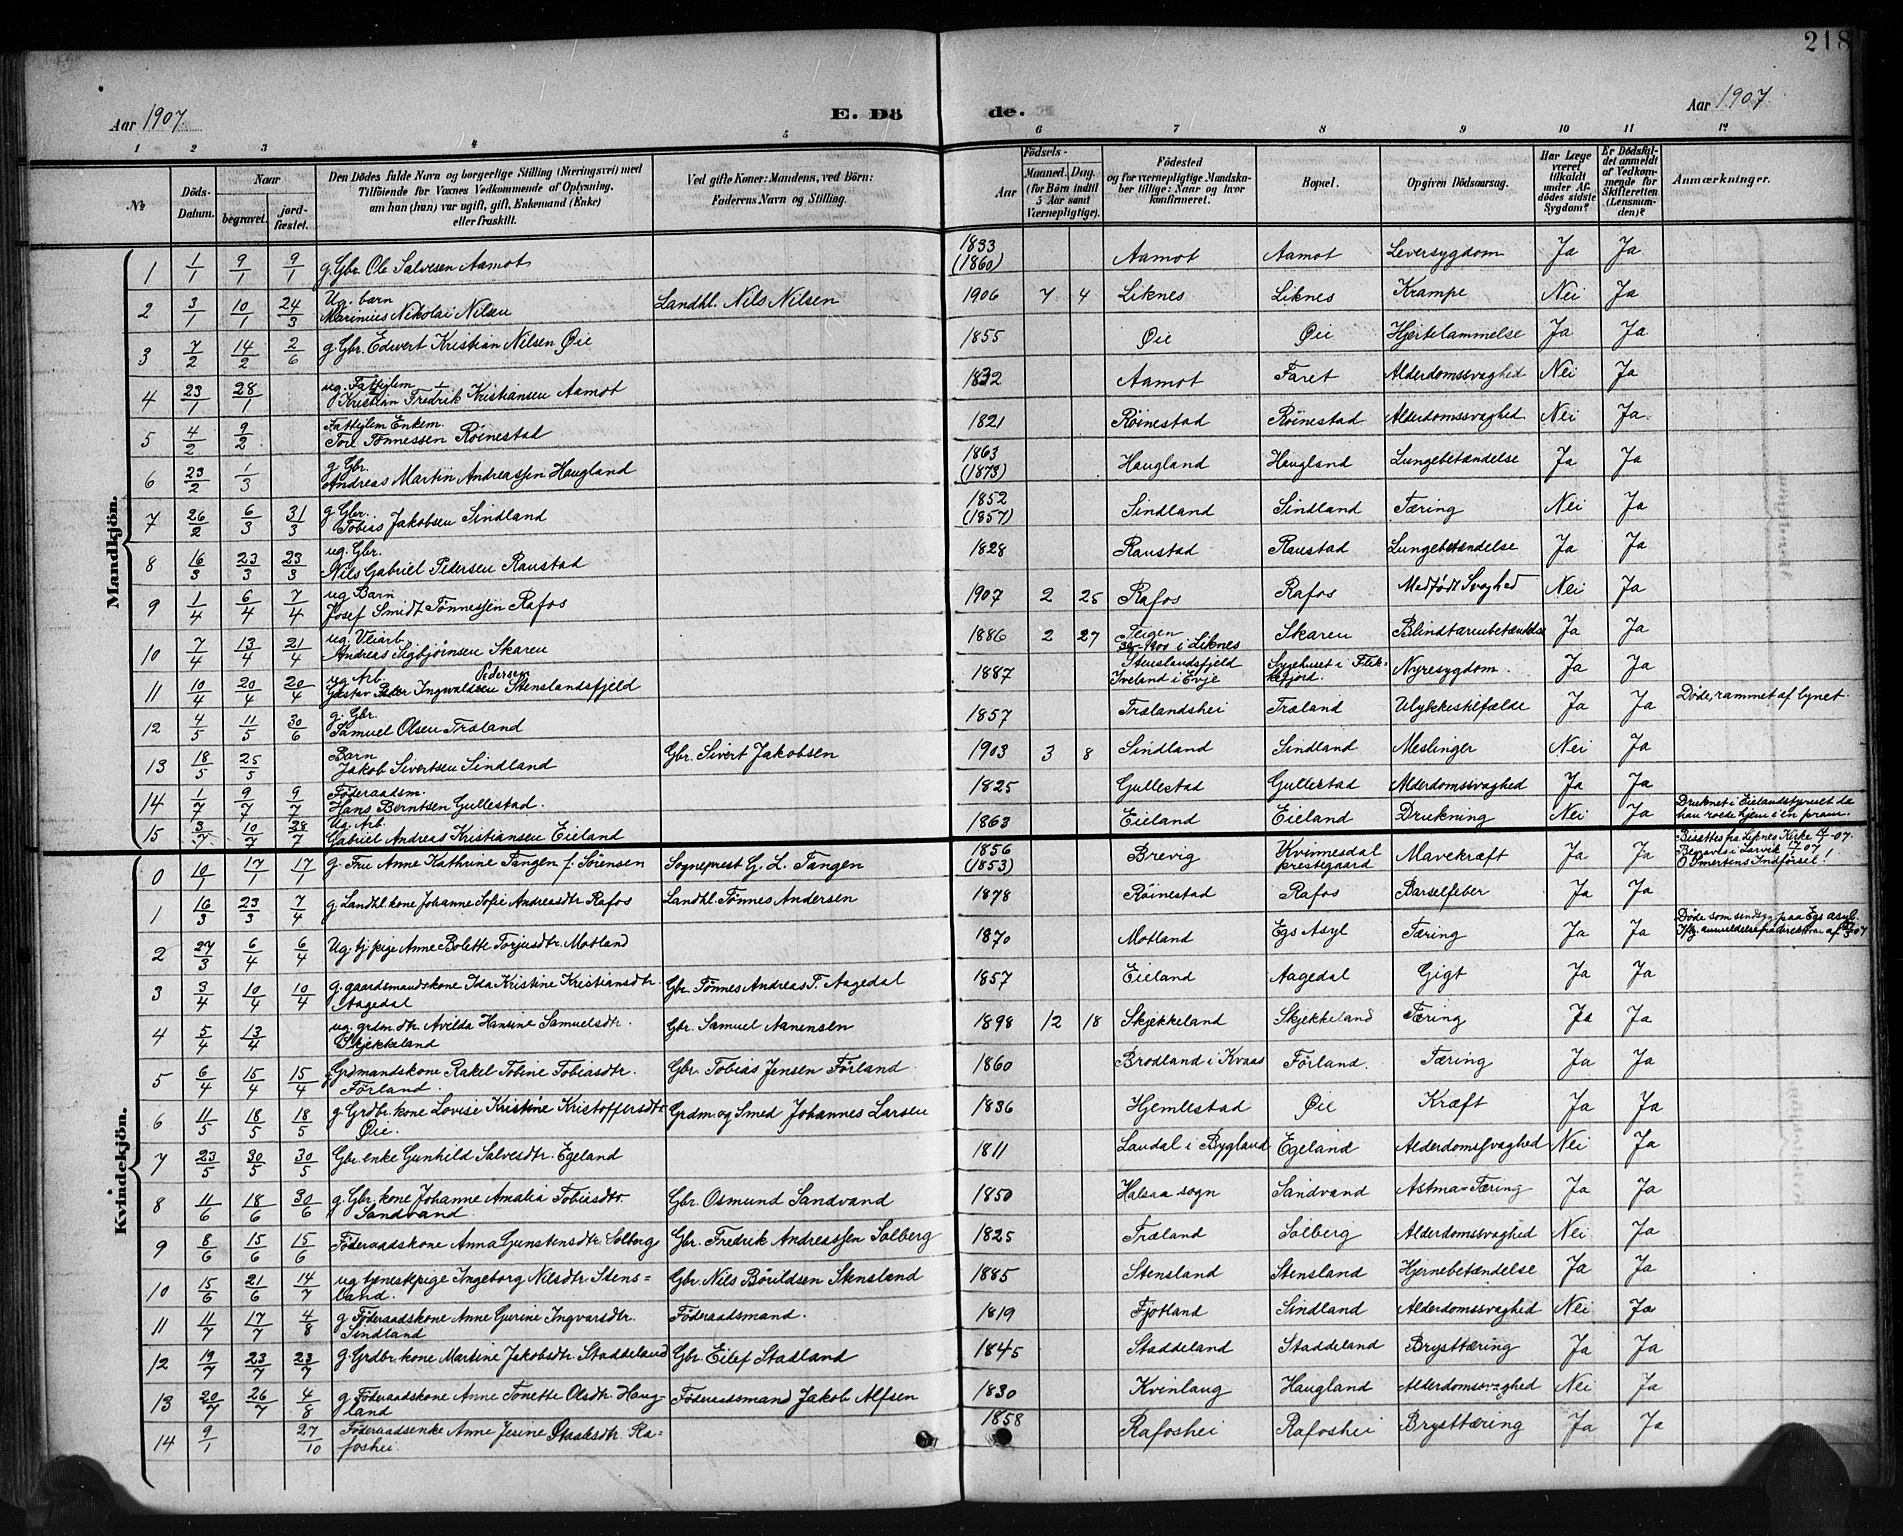 218
Aar 1907.
E. Dö
de.
Aar 1907.
1 2 3 4 5 6 7 8 9 10 11 12
No
Döds-Datum.
Naar
begravet.
jord-fæstet.
Den Dödes fulde Navn og borgerlige Stilling (Næringsvei) med
Tilföiende for Voxnes Vedkommende af Oplysning,
om han (hun) var ugift, gift, Enkemand (Enke)
eller fraskilt.
Ved gifte Koner: Mandens, ved Börn:
Faderens Navn og Stilling.
Födsels-
Aar
Maaned. Dag.
(for Börn indtil
5 Aar samt
Værnepligtige).
Födested
og for værnepligtige Mandska-
ber tillige: Naar og hvor
konfirmeret.
Bopæl.
Opgiven Dödsaarsag.
Har Læge
været
tilkaldt
under Af-
dödes sidste
Sygdom?
Er Dödsfal-
det anmeldt
af Vedkom-
mende for
Skifteretten
(Lensman-
den)?
Anmærkninger.
Mandkjön.
1 1/1 9/1 9/1 g. Gbr. Ole Salvesen Aamot 1833 (1860) Aamot Aamot Leversygdom Ja Ja
2 3/1 10/1 24/3 Ug. barn Marinius Nikolai Nilsen Landhl. Nils Nilsen 1906 7 4 Liknes Liknes Krampe Nei Ja
3 7/2 14/2 2/6 g. Gbr. Edvert Kristian Nilsen Øie 1855 Øie Øie Hjertelammelse Ja Ja
4 23/1 28/1 ug. Fattiglem Kristian Fredrik Kristiansen Aamot 1832 Aamot Faret Alderdomssvaghed Nei Ja
5 4/2 9/2 Fattiglem Enkem. Tore Tønnessen Røinestad 1821 Røinestad Røinestad Alderdomssvaghed Nei Ja
6 23/2 1/3 g. Gbr. Andreas Martin Andreassen Haugland 1863 (1873) Haugland Haugland Lungebetændelse Ja Ja
7 26/2 6/3 31/3 g. Gbr. Tobias Jakobsen Sindland 1852 (1857) Sindland Sindland Tæring Nei Ja
8 16/3 23/3 23/3 ug. Gbr. Nils Gabriel Pedersen Raustad 1828 Raustad Raustad Lungebetændelse Ja Ja
9 1/4 6/4 7/4 ug Barn Josef Smidt Tønnessen Rafos 1907 2 25 Rafos Rafos Medfødt Svaghed Nei Ja
10 7/4 13/4 21/4 ug. Veiarb. Andreas Sigbjørnsen Skaren 1886 2 27 Teigen 1900 i Liknes Skaren Blindtarmbetændelse Ja Ja
11 10/4 20/4 20/4 ug Arb. Gustav Peder Ingwaldsen Pedersen Stenslandsfjeld 1887 Stenslandsfjeld Iveland i Evje Sygehuset i Flekkefjord. Nyresygdom. Ja Ja
12 4/5 11/5 30/6 g. Gbr. Samuel Olsen Træland 1857 Trælandshei Træland Ulykkestilfælde Ja Ja Døde, rammet af lynet.
13 18/5 25/5 Barn Jakob Sivertsen Sindland Gbr. Sivert Jakobsen 1903 3 8 Sindland Sindland Meslinger Nei Ja
14 1/7 9/7 9/7 Føderaadsm. Hans Berntsen Gullestad. 1825 Gullestad Gullestad Alderdomssvaghed Ja Ja
15 3/7 10/7 28/7 Ug. Arb. Gabriel Andreas Kristiansen Eieland 1863 Eieland Eieland Drukning Nei Ja Druknet i Eielandstjernet da han rode hjem i en pram.
Kvindekjön.
0 10/1 17/1 17/1 g. Fru Anne Kathrine Tangen f. Sørensen Sogneprest G. L. Tangen 1856 (1853) Brevig Kvinnesdal prestegaard Mavekræft Ja Ja Bisattes fra Liknes Kirke Begravet i Larvik 17/1 07 O. Smertens Indførsel!
1 16/3 23/3 7/4 g. Landhl. kone Johanne Sofie Andreasdtr Rafos Landhl. Tønnes Andersen 1878 Røinestad Rafos Barselfeber Ja Ja
2 27/3 6/4 6/4 Ug. tj. pige Anne Bolette Torjusdtr. Motland 1870 Motland Egs Asyl Tæring Ja Ja Døde som sindssyg paa Egs asyl. Iflg. anmeldelse fra direktøren af 27/3 07
3 3/4 10/4 10/4 g. gaardsmandskone Ida Kristine Kristiansdtr. Aagedal Gbr. Tønnes Andreas T. Aagedal 1857 Eieland Aagedal Gigt Ja Ja
4 5/4 13/4 ug. grdm. dtr. Avilda Hansine Samuelsdtr. Skjekkeland Gbr. Samuel Aanensen 1898 12 18 Skjekkeland Skjekkeland Tæring Ja Ja
5 6/4 15/4 15/4 Grdmandskone Rakel Tobine Tobiasdtr. Førland. Gbr. Tobias Jensen Førland 1860 Brodland i Kvaas Førland. Tæring Ja Ja
6 11/5 18/5 18/5 g Grdbr. kone Lovise Kristine Kristoffersdtr Øie. Grdm. og Smed Johannes Larsen 1836 Hjemlestad Øie Kræft Ja Ja
7 23/5 30/5 30/5 Gbr. enke Gunhild Salvesdtr. Egeland 1811 Laudal i Bygland Egeland Alderdomssvaghed Nei Ja
8 11/6 18/6 30/6 g. Gbr. kone Johanne Amalia Tobiasdtr. Sandvand Gbr. Osmund Sandvand 1850 Halsaa sogn Sandvand Astma=Tæring Ja Ja
9 8/6 15/6 15/6 Føderaadskone Anna Gunstensdtr Solberg Gbr. Fredrik Andreassen Solberg 1825 Træland Solberg Alderdomssvaghed Nei Ja
10 15/6 21/6 14/7 ug tjenestpige Ingeborg Nilsdtr Stens=land. Gbr. Nils Børildsen Stensland 1885 Stensland Stensland Hjernebetændelse Ja Ja
11 11/7 17/7 4/8 g Føderaadskone Anne Gurine Ingvarsdtr. Sindland Føderaadsmand. 1819 Fjotland Sindland Alderdomssvaghed Nei Ja
12 19/7 23/7 23/7 g. Grdbr. kone Martine Jakobsdtr Staddeland Gbr. Eilef Stadland 1845 Staddeland Staddeland Brysttæring Ja Ja
13 20/7 26/7 4/8 g Føderaadskone Anne Tonette Olsdtr. Haug-land Føderaadsmand Jakob Alfsen 1830 Kvinlaug Haugland Alderdomssvaghed Nei Ja
14 9/1 27/10 Føderaadsenke Anne Jesine Staalesdtr. Ra=foshei. 1858 Rafoshei Rafoshei Brysttæring Ja Ja